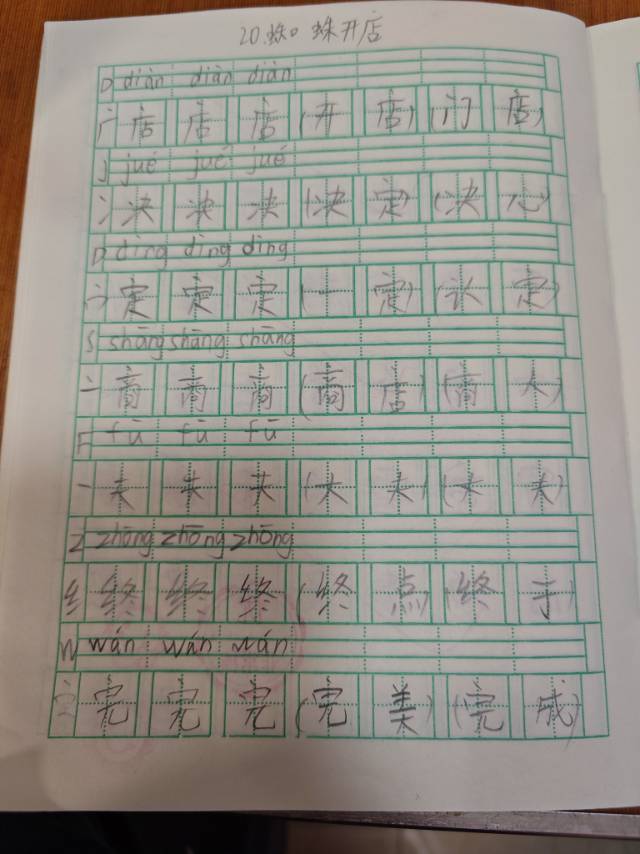 20.蜘蛛开店
D diàn diàn diàn
广 店 店 店 (开 店) (门 店)
J jué jué jué
冫 决 决 决 (决 定) (决 心)
D dìng dìng dìng
宀 定 定 定 (一 定) (认 定)
S shāng shāng shāng
亠 商 商 商 (商 店) (商 人)
F fū fū fū
一 夫 夫 夫 (大 夫) (丈 夫)
Z zhōng zhōng zhōng
纟 终 终 终 (终 点) 终 于
W wán wán wán
宀 完 完 完 (完 美) (完 成)